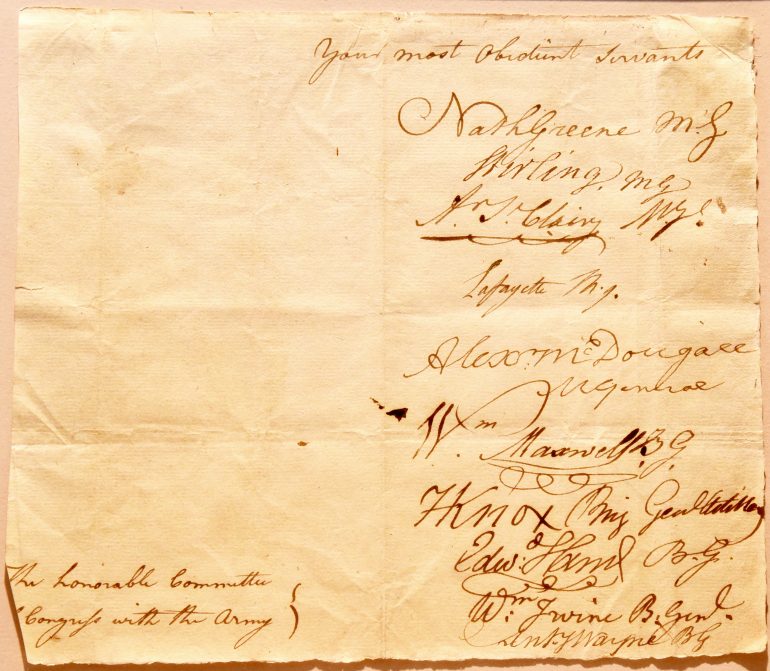 Your most obedient servants
Nath Greene M.G
Stirling, MG
Ar. St. Clair, M.Gl.
Lafayette M.g.
Alexr. McDougall
M General
Wm. Maxwell B.G.
HKnox Brig Genl Artillery
Edwd. Hand B.G.
Wm. Irvine B. Genl.
Anty Wayne BG
The honorable Committee
Congress with the Army }